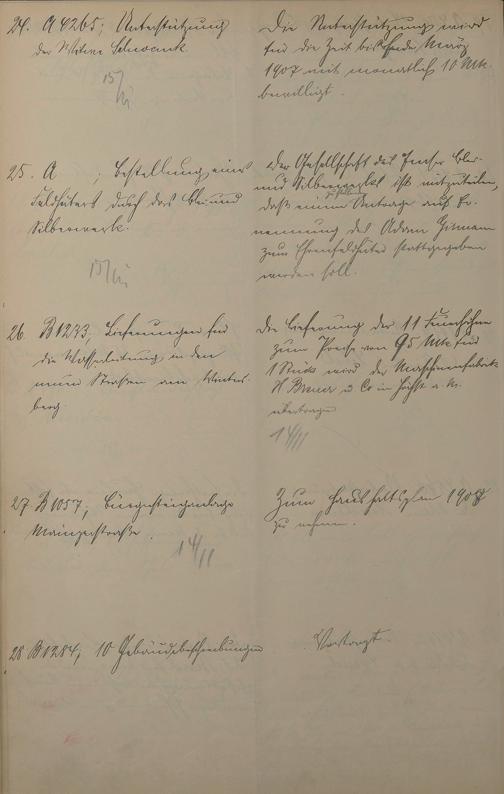 24. A 4265; Unterstützung
der Witwe Schwank.
15/II
Die Unterstützung wird
für die Zeit bis Ende März
1907 mit monatlich 10 Mk.
bewilligt.
25. A ; Bestellung eines
Feldhüters durch das Blei und
Silberwerk.
15/II
Der Gesellschaft des Emser Blei-
und Silberwerks ist mitzuteilen,
daß einem Antrage auf Er-
nennung des Adam
zum Ehrenfeldhüter stattgegeben
werden soll.
26. B 1273, Lieferungen für
die Wasserleitung in den
neuen Straßen am Winters-
berg.
Die Lieferung der 11
zum Preise von 95 Mk für
1 Stück wird der Maschinenfabrik
H Breuer u Co in Höchst a. M.
übertragen
14/II
27. B 1057, Bürgersteiganlage
Mainzerstraße.
14/II
Zum Haushaltsplan 1908
zu nehmen.
28. B 1284, 10 Gebäudebeschreibungen
Vertagt.